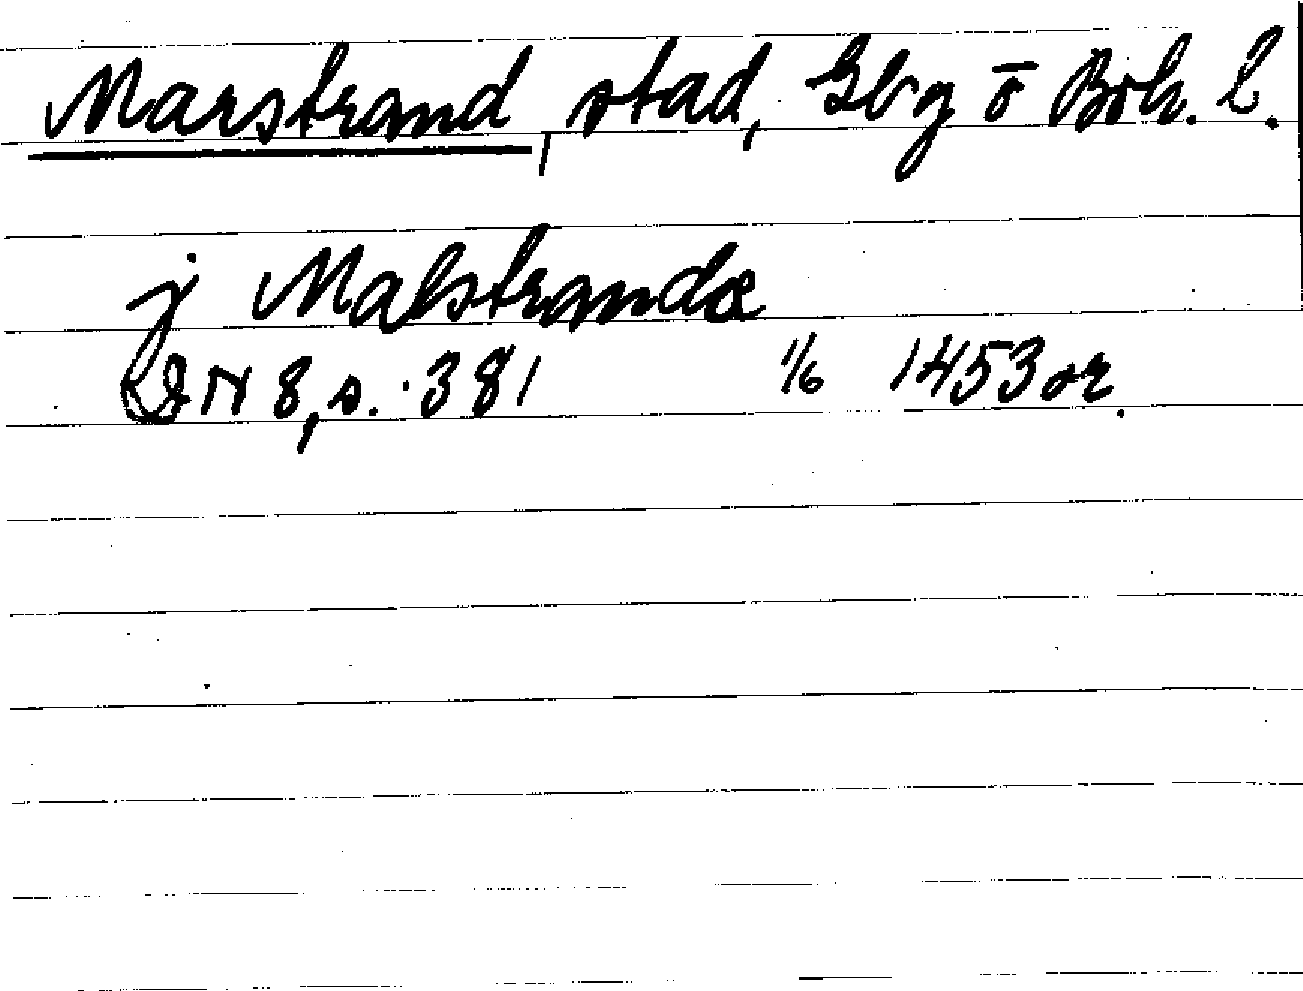 Marstrand, stad, Gbg o Boh. l.
j Malstrandæ
DN 8, s. 381 1/6 1453 or.